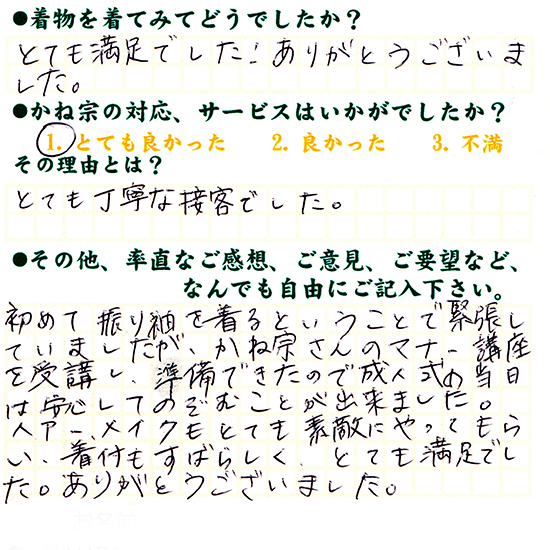 ●着物を着てみてどうでしたか？
とても満足でした！ありがとうございま
した。
●かね宗の対応、サービスはいかがでしたか？
1. とても良かった 2. 良かった 3. 不満
その理由とは？
とても丁寧な接客でした。
●その他、率直なご感想、ご意見、ご要望など、
なんでも自由にご記入下さい。
初めて振り袖を着るということで緊張し
ていましたが、かね宗さんのマナー講座
を受講し、準備できたので成人式の当日
は安心してのぞむことが出来ました。
ヘアー、メイクもとても素敵にやってもら
い、着付もすばらしく、とても満足でし
た。ありがとうございました。